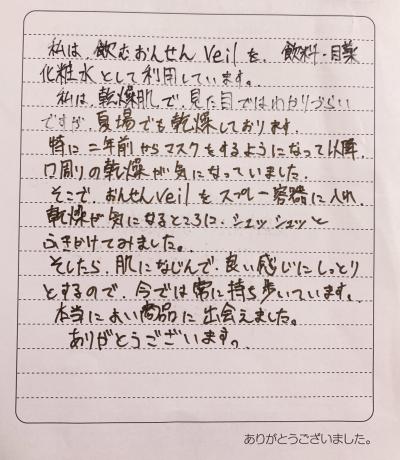 私は、飲むおんせんveilを、飲料・目薬
化粧水として利用しています。
私は、乾燥肌で、見た目ではわかりづらい
ですが、夏場でも乾燥しております。
特に二年前からマスクをするようになって以降、
口周りの乾燥が気になっていました。
そこで、おんせんveilをスプレー容器に入れ、
乾燥が気になるところに、シュッシュッと
ふきかけてみました。
そしたら、肌になじんで、良い感じにしっとり
とするので、今では常に持ち歩いています。
本当によい商品に出会えました。
ありがとうございます。
ありがとうございました。